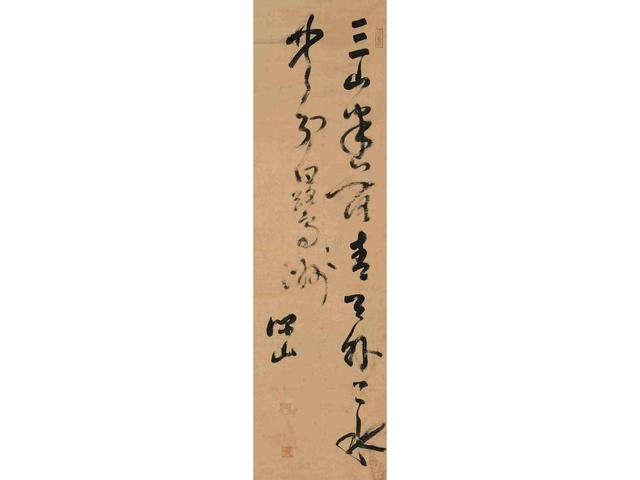 三山半落青天外二水
中分白鷺洲
山